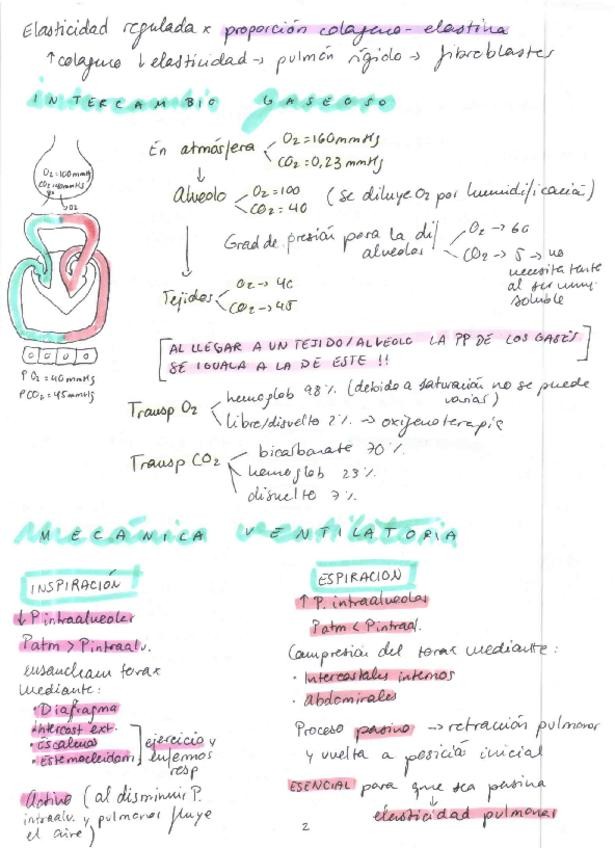 Elasticidad regulada x proporción colageno - elastina
↑colageno ↓elasticidad → pulmón rígido → fibroblastos
INTERCAMBIO GASEOSO
En atmósfera
O2 = 160 mmHg
CO2 = 0,23 mmHg
O2 = 100 mmHg
CO2 = 40 mmHg
O2
Alveolo
O2 = 100
CO2 = 40
(Se diluye O2 por humidificación)
Grad de presión para la dif alveolar
O2 → 60
CO2 → 5 → no
necesita tanto
al ser muy
soluble
Tejidos
O2 → 40
CO2 → 45
PO2 = 40mmHg
PCO2 = 45mmHg
[AL LLEGAR A UN TEJIDO/ALVEOLO LA PP DE LOS GASES
SE IGUALA A LA DE ESTE !!]
Transp O2
hemoglob 98% (debido a saturación no se puede
variar)
libre/disuelto 2% → oxigenoterapia
Transp CO2
bicarbonate 70%
hemoglob 23%
disuelto 7%
MECÁNICA VENTILATORIA
INSPIRACIÓN
↓ P intraalveolar
Patm > Pintraalv.
ensancham torax
mediante:
• Diafragma
• Intercost ext.
• Escalenos
• Esternocleidom
ejercicio y
enfermos
resp
Activo (al disminuir P.
intraalv. y pulmonar fluye
el aire)
ESPIRACION
↑ P. intraalveolar
Patm < Pintraal.
Compresion del torax mediante:
• Intercostales internos
• Abdominales
Proceso pasivo → retracción pulmonar
y vuelta a posición inicial
ESENCIAL para que sea pasiva
↓
elasticidad pulmonar
2